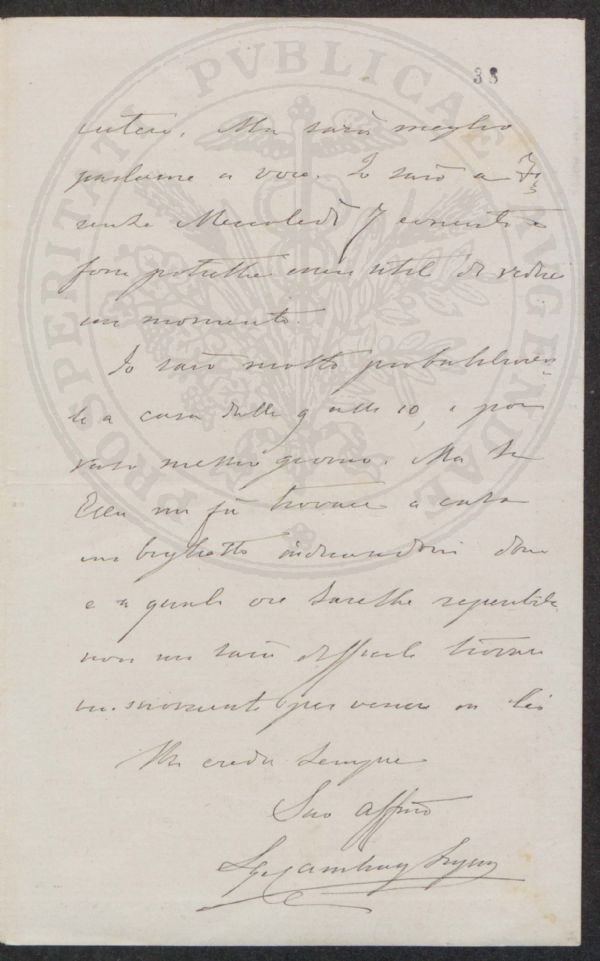 38
intero. Ma sarà meglio
parlarne a voce. Io sarò a Fi
renze Mercoledì 7 corrente e
forse potrebbe essere utile di vederci
un momento.
Io sarò molto probabilmen-
te a casa dalle 9 alle 10, e poi
verso mezzo giorno. Ma se
Ella mi fa trovare a casa
un biglietto indicandomi dove
e a quale ora sarebbe reperibile
non mi sarà difficile trovare
un momento per venire da lei
Mi creda sempre
Suo affmo
PROSPERITATI PVBLICAE AVGENDAE